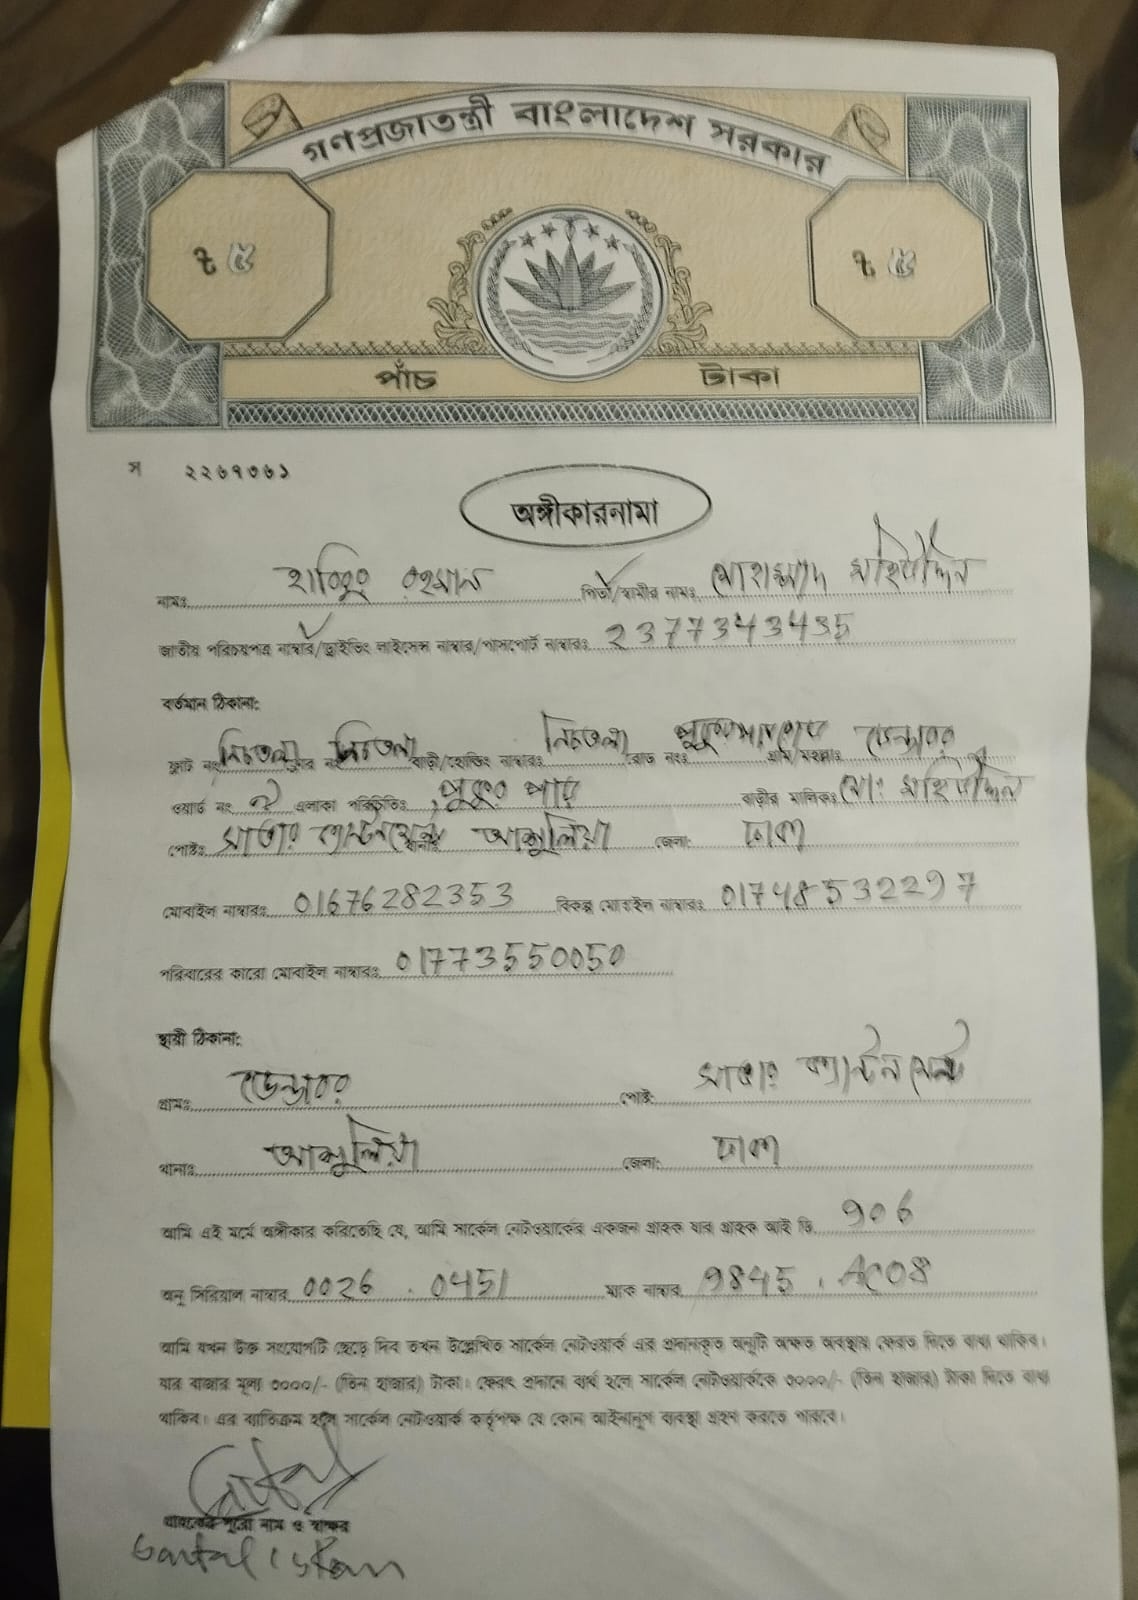 গণপ্রজাতন্ত্রী বাংলাদেশ সরকার
৳ ৫ ৳ ৫
পাঁচ টাকা
স ২২৬৭৩৬১
অঙ্গীকারনামা
নামঃ হাবিবুর রহমান পিতা/স্বামীর নামঃ মোহাম্মাদ মহিউদ্দিন
জাতীয় পরিচয়পত্র নাম্বার/ড্রাইভিং লাইসেন্স নাম্বার/পাসপোর্ট নাম্বারঃ 2377343435
বর্তমান ঠিকানা:
ফ্লাট নং নিচতলা নিচতলা বাড়ী/হোল্ডিং নাম্বারঃ নিচতলা রোড নংঃ গ্রাম/মহল্লাঃ ডেন্ডাবর
ওয়ার্ড নং এলাকা পরিচিতিঃ পুকুর পাড় বাড়ীর মালিকঃ মোঃ মহিউদ্দিন
পোষ্টঃ সাভার ক্যান্টনমেন্ট আশুলিয়া জেলা: ঢাকা
মোবাইল নাম্বারঃ 01676282353 বিকল্প মোবাইল নাম্বারঃ 01748532297
পরিবারের কারো মোবাইল নাম্বারঃ 01773550050
স্থায়ী ঠিকানা:
গ্রামঃ ডেন্ডাবর পোষ্ট: সাভার ক্যান্টনমেন্ট
থানাঃ আশুলিয়া জেলা: ঢাকা
আমি এই মর্মে অঙ্গীকার করিতেছি যে, আমি সার্কেল নেটওয়ার্কের একজন গ্রাহক যার গ্রাহক আই ডি 906
অনু সিরিয়াল নাম্বার 0026 . 0451 ম্যাক নাম্বার 9845 . AC08
আমি যখন উক্ত সংযোগটি ছেড়ে দিব তখন উল্লেখিত সার্কেল নেটওয়ার্ক এর প্রদানকৃত অনুটি অক্ষত অবস্থায় ফেরত দিতে বাধ্য থাকিব।
যার বাজার মূল্য ৩০০০/- (তিন হাজার) টাকা। ফেরৎ প্রদানে ব্যর্থ হলে সার্কেল নেটওয়ার্ককে ৩০০০/- (তিন হাজার) টাকা দিতে বাধ্য
থাকিব। এর ব্যতিক্রম হলে সার্কেল নেটওয়ার্ক কর্তৃপক্ষ যে কোন আইনানুগ ব্যবস্থা গ্রহণ করতে পারবে।
গ্রাহকের পুরো নাম ও স্বাক্ষর